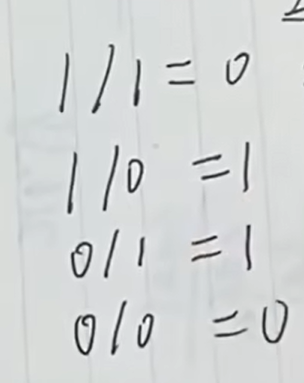 1/1=0
1/0 =1
0/1 =1
0/0 =0